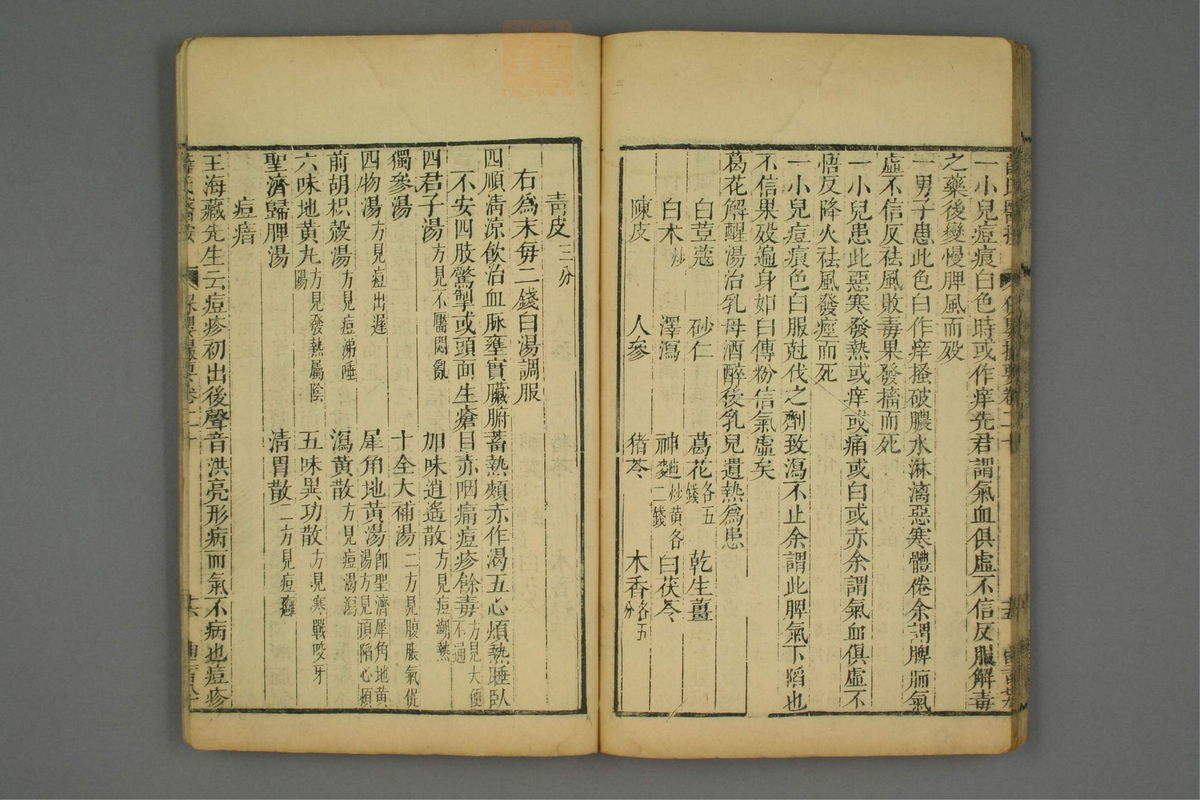 一小兒痘痕白色時或作痒先君謂氣血俱虛不信反服解毒
之藥後變慢脾風而歿
一男子患此色白作痒搔破膿水淋漓惡寒體倦余謂脾肺氣
虛不信反祛風敗毒果發搐而死
一小兒患此惡寒發熱或痒或痛或白或赤余謂氣血俱虛不
悟反降火祛風發痙而死
一小兒痘痕色白服尅伐之劑致瀉不止余謂此脾氣下陷也
不信果歿遍身如白傅粉信氣虛矣
葛花解酲湯治乳母酒醉後乳兒遺熱爲患
白荳蔻 砂仁 葛花各五錢 乾生薑
白朮炒 澤瀉 神麯炒黃各二錢 白茯苓
陳皮 人參 猪苓 木香各五分
青皮三分
右爲末每二錢白湯調服
四順清涼飲治血脉壅實臟腑蓄熱頰赤作渴五心煩熱睡臥
不安四肢驚掣或頭面生瘡目赤咽痛痘疹餘毒方見大便不通
四君子湯方見不靨悶亂 加味逍遙散方見痘 熱
獨參湯 十全大補湯二方見腹脹氣促
四物湯方見痘出遲 犀角地黃湯卽聖濟犀角地黃湯方見頂陷心煩
前胡枳殼湯方見痘涕唾 瀉黃散方見痘渴瀉
六味地黃丸方見發熱屬陰陽 五味異功散方見寒戰咬牙
聖濟歸脾湯 清胃散二方見痘癰
痘瘖
王海藏先生云痘疹初出後聲音洪亮形病而氣不病也痘疹